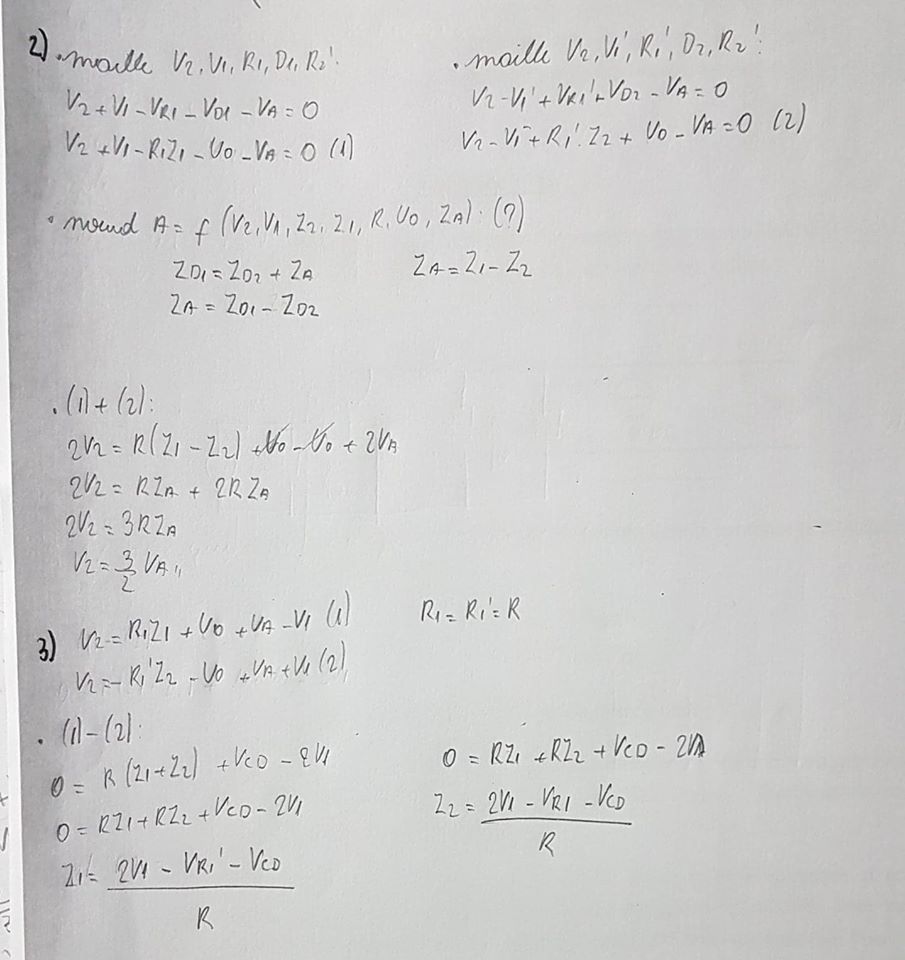 2) . maille V2, V1, R1, D1, R2':
V2 + V1 - VR1 - VD1 - VA = 0
V2 + V1 - R1I1 - U0 - VA = 0 (1)
. maille V2, V1', R1', D2, R2':
V2 - V1' + VR1' + VD2 - VA = 0
V2 - V1 + R1'.I2 + U0 - VA = 0 (2)
. noeud A = f (V2, V1, I2, I1, R, U0, IA). (?)
ID1 = ID2 + IA
IA = I1 - I2
IA = ID1 - ID2
. (1) + (2):
2V2 = R(I1 - I2) + U0 - U0 + 2VA
2V2 = RIA + 2RIA
2V2 = 3RIA
V2 = 3/2 VA,,
3) V2 = R1I1 + U0 + VA - V1 (1)
R1 = R1' = R
V2 = - R1'I2 - U0 + VA + V1 (2)
. (1) - (2):
0 = R (I1 + I2) + VCD - 2V1
0 = RI1 + RI2 + VCD - 2V1
I1 = 2V1 - VR1' - VCD / R
0 = RI1 + RI2 + VCD - 2V1
I2 = 2V1 - VR1 - VCD / R